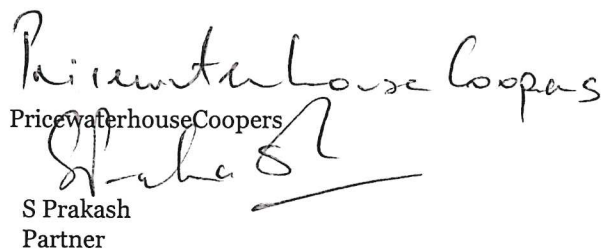 PricewaterhouseCoopers
PricewaterhouseCoopers
S Prakash
S Prakash
Partner